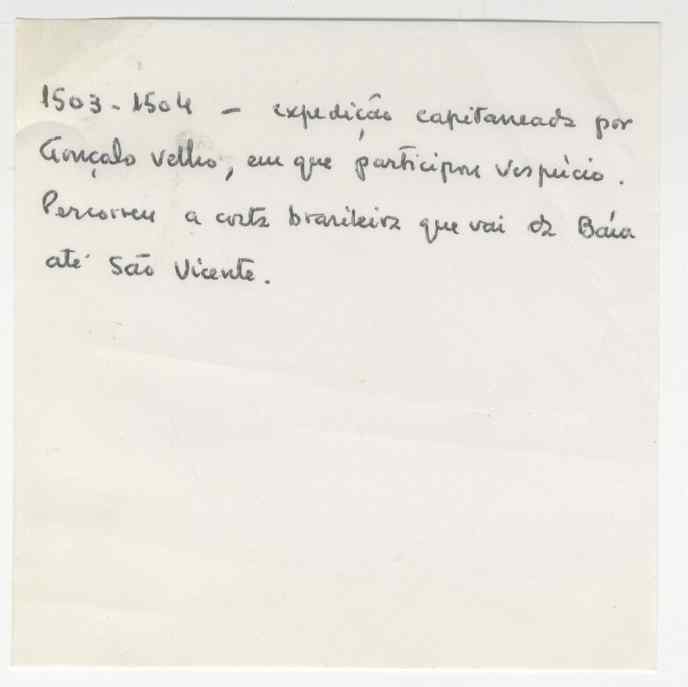 1503-1504 — expedição capitaneada por
Gonçalo Velho, em que participou Vespúcio.
Percorreu a costa brasileira que vai da Baía
até São Vicente.